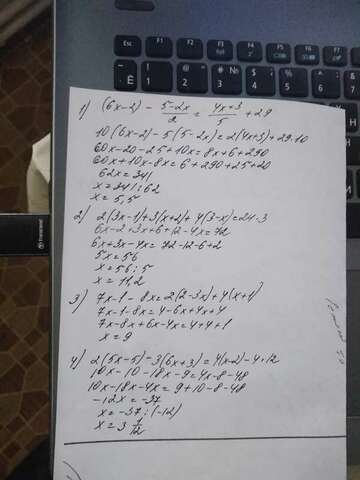 Esc
F1
F2
F3
F4
F5
F6
F7
1) (6x-2) - 5-2x/2 = 4x+3/5 + 29
10(6x-2)-5(5-2x)=2(4x+3)+29·10
60x-20-25+10x=8x+6+290
60x+10x-8x=6+290+25+20
62x=341
x=341:62
x=5,5
2) 2(3x-1)+3(x+2)+4(3-x)=24·3
6x-2+3x+6+12-4x=72
6x+3x-4x=72-12-6+2
5x=56
x=56:5
x=11,2
3) 7x-1-8x=2(2-3x)+4(x+1)
7x-1-8x=4-6x+4x+4
7x-8x+6x-4x=4+4+1
x=9
4) 2(5x-5)-3(6x+3)=4(x-2)-4·12
10x-10-18x-9=4x-8-48
10x-18x-4x=9+10-8-48
-12x=-37
x=-37:(-12)
x=3 1/12
Transcend